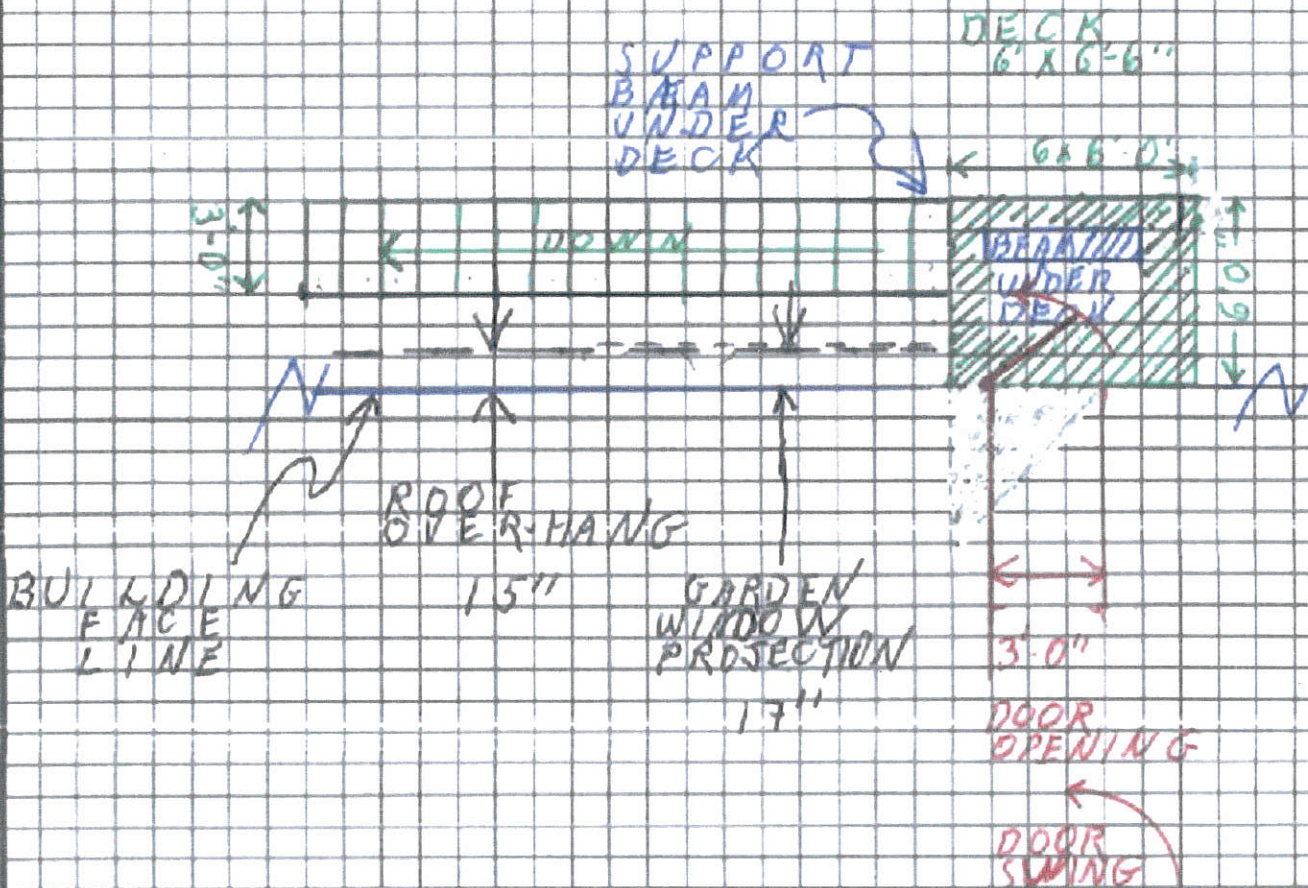 DECK
6' X 6'-6"
SUPPORT
BEAM
UNDER
DECK
6X6'-0"
3'-0"
DOWN
BEAM
UNDER
DECK
6'-0"
ROOF
OVER-HANG
15"
BUILDING
FACE
LINE
GARDEN
WINDOW
PROJECTION
17"
3'-0"
DOOR
OPENING
DOOR
SWING